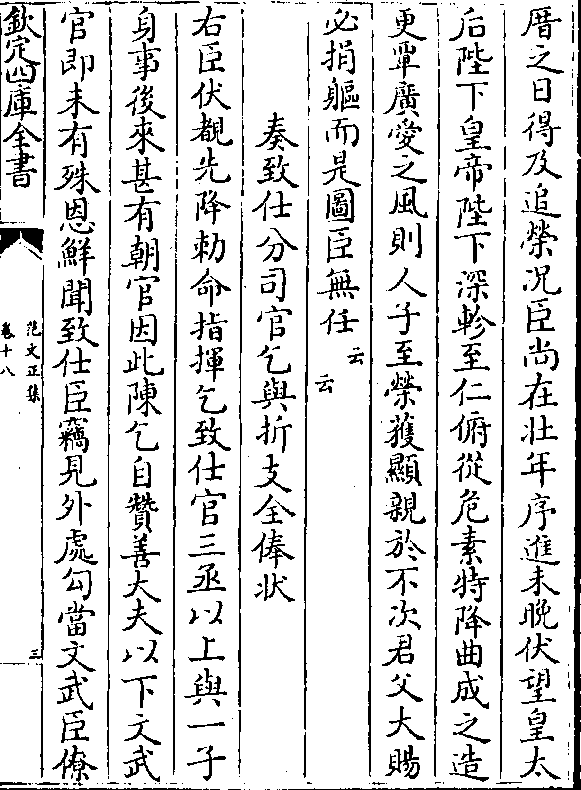 厝之日得及追榮况臣尚在壮年序進未晚伏望皇太
后陛下皇帝陛下深軫至仁俯從危素特降曲成之造
更覃廣愛之風則人子至榮獲顯親於不次君父大賜
必捐軀而是圖臣無任云云
奏致仕分司官乞與折支全俸状
右臣伏覩先降勅命指揮乞致仕官三丞以上與一子
身事後來甚有朝官因此陳乞自贊善大夫以下文武
官即未有殊恩鮮聞致仕臣竊見外處勾當文武臣僚
欽定四庫全書
范文正集
卷十八
三